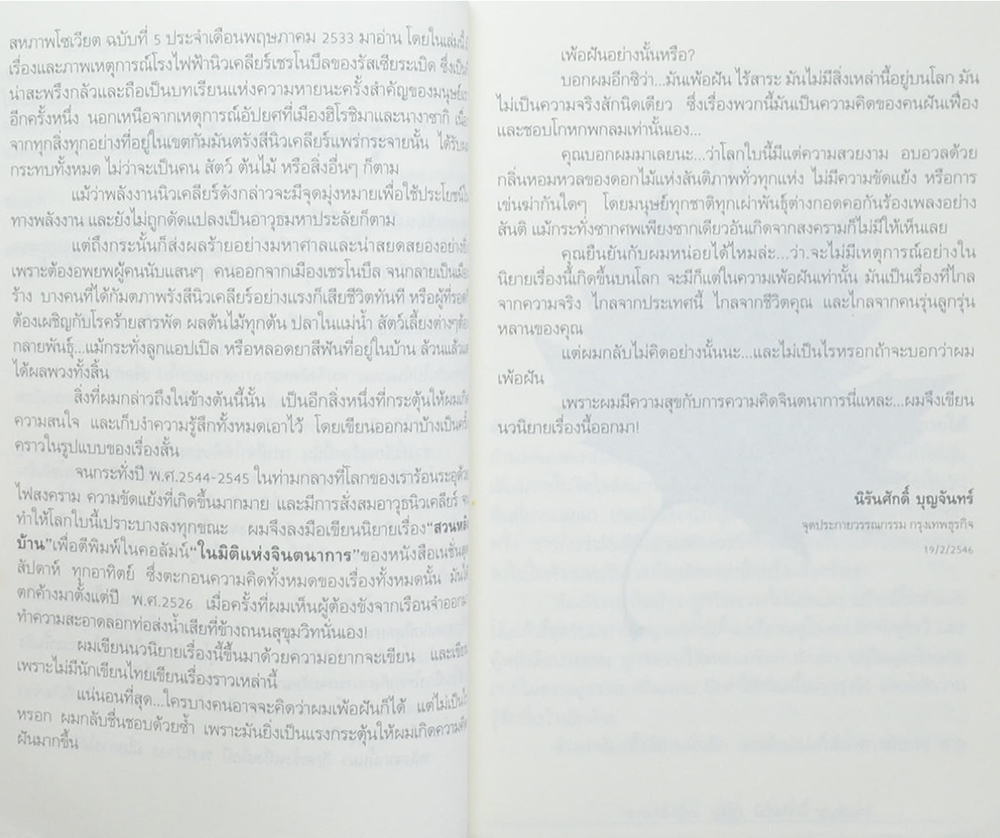 สหภาพโซเวียต ฉบับที่ 5 ประจำเดือนพฤษภาคม 2533 มาอ่าน โดยในเล่มนี้
เรื่องและภาพเหตุการณ์โรงไฟฟ้านิวเคลียร์เชรโนบีลของรัสเซียระเบิด ซึ่งเป็น
น่าสะพรึงกลัวและถือเป็นบทเรียนแห่งความหายนะครั้งสำคัญของมนุษย์
อีกครั้งหนึ่ง นอกเหนือจากเหตุการณ์อัปยศที่เมืองฮิโรชิมาและนางาซากิ
จากทุกสิ่งทุกอย่างที่อยู่ในเขตกัมมันตรังสีนิวเคลียร์แพร่กระจายนั้น ได้รับ
กระทบทั้งหมด ไม่ว่าจะเป็นคน สัตว์ ต้นไม้ หรือสิ่งอื่นๆ ก็ตาม
แม้ว่าพลังงานนิวเคลียร์ดังกล่าวจะมีจุดมุ่งหมายเพื่อใช้ประโยชน์
ทางพลังงาน และยังไม่ถูกดัดแปลงเป็นอาวุธมหาประลัยก็ตาม
แต่ถึงกระนั้นก็ส่งผลร้ายอย่างมหาศาลและน่าสยดสยองอย่าง
เพราะต้องอพยพผู้คนนับแสนๆ คนออกจากเมืองเชรโนบีล จนกลายเป็นเมือง
ร้าง บางคนที่ได้กัมตภาพรังสีนิวเคลียร์อย่างแรงก็เสียชีวิตทันที หรือผู้ที่รอด
ต้องเผชิญกับโรคร้ายสารพัด ผลต้นไม้ทุกต้น ปลาในแม่น้ำ สัตว์เลี้ยงต่างๆ
กลายพันธุ์...แม้กระทั่งลูกแอปเปิล หรือหลอดยาสีฟันที่อยู่ในบ้าน ล้วนแล้ว
ได้ผลพวงทั้งสิ้น
สิ่งที่ผมกล่าวถึงในข้างต้นนี้นั้น เป็นอีกสิ่งหนึ่งที่กระตุ้นให้ผม
ความสนใจ และเก็บงำความรู้สึกทั้งหมดเอาไว้ โดยเขียนออกมาบ้างเป็น
คราวในรูปแบบของเรื่องสั้น
จนกระทั่งปี พ.ศ.2544-2545 ในท่ามกลางที่โลกของเราร้อนระอุด้วย
ไฟสงคราม ความขัดแย้งที่เกิดขึ้นมากมาย และมีการสั่งสมอาวุธนิวเคลียร์
ทำให้โลกใบนี้เปราะบางลงทุกขณะ ผมจึงลงมือเขียนนิยายเรื่อง"สวนหลัง
บ้าน"เพื่อตีพิมพ์ในคอลัมน์"ในมิติแห่งจินตนาการ"ของหนังสือเนชั่นสุด
สัปดาห์ ทุกอาทิตย์ ซึ่งตะกอนความคิดทั้งหมดของเรื่องทั้งหมดนั้น มัน
ตกค้างมาตั้งแต่ปี พ.ศ.2526 เมื่อครั้งที่ผมเห็นผู้ต้องขังจากเรือนจำออก
ทำความสะอาดลอกท่อส่งน้ำเสียที่ข้างถนนสุขุมวิทนั่นเอง!
ผมเขียนนวนิยายเรื่องนี้ขึ้นมาด้วยความอยากจะเขียน และเขียน
เพราะไม่มีนักเขียนไทยเขียนเรื่องราวเหล่านี้
แน่นอนที่สุด...ใครบางคนอาจจะคิดว่าผมเพ้อฝันก็ได้ แต่ไม่เป็นไร
หรอก ผมกลับชื่นชอบด้วยซ้ำ เพราะมันยิ่งเป็นแรงกระตุ้นให้ผมเกิดความคิด
ฝันมากขึ้น
เพ้อฝันอย่างนั้นหรือ?
บอกผมอีกซิว่า...มันเพ้อฝัน ไร้สาระ มันไม่มีสิ่งเหล่านี้อยู่บนโลก มัน
ไม่เป็นความจริงสักนิดเดียว ซึ่งเรื่องพวกนี้มันเป็นความคิดของคนฝันเฟื่อง
และชอบโกหกพกลมเท่านั้นเอง...
คุณบอกผมมาเลยนะ...ว่าโลกใบนี้มีแต่ความสวยงาม อบอวลด้วย
กลิ่นหอมหวลของดอกไม้แห่งสันติภาพทั่วทุกแห่ง ไม่มีความขัดแย้ง หรือการ
เข่นฆ่ากันใดๆ โดยมนุษย์ทุกชาติทุกเผ่าพันธุ์ต่างกอดคอกันร้องเพลงอย่าง
สันติ แม้กระทั่งซากศพเพียงซากเดียวอันเกิดจากสงครามก็ไม่มีให้เห็นเลย
คุณยืนยันกับผมหน่อยได้ไหมล่ะ...ว่า.จะไม่มีเหตุการณ์อย่างใน
นิยายเรื่องนี้เกิดขึ้นบนโลก จะมีก็แต่ในความเพ้อฝันเท่านั้น มันเป็นเรื่องที่ไกล
จากความจริง ไกลจากประเทศนี้ ไกลจากชีวิตคุณ และไกลจากคนรุ่นลูกรุ่น
หลานของคุณ
แต่ผมกลับไม่คิดอย่างนั้นนะ...และไม่เป็นไรหรอกถ้าจะบอกว่าผม
เพ้อฝัน
เพราะผมมีความสุขกับการความคิดจินตนาการนี่แหละ...ผมจึงเขียน
นวนิยายเรื่องนี้ออกมา!
นิรันศักดิ์ บุญจันทร์
จุดประกายวรรณกรรม กรุงเทพธุรกิจ
19/2/2546